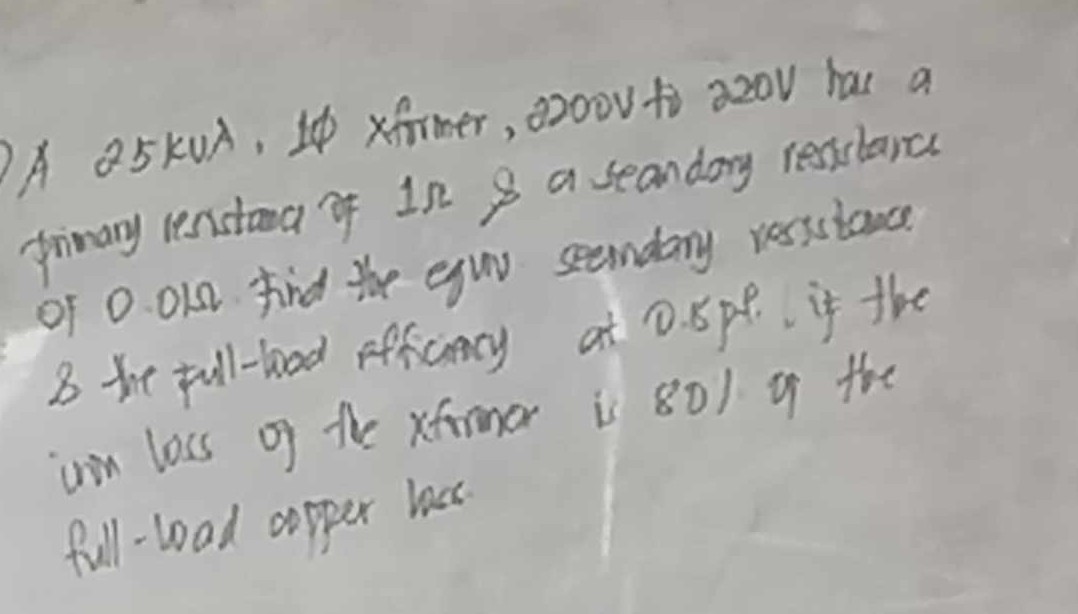 ) A 25 KVA, 1ϕ xformer, 2200V to 220V has a
primary resistance of 1Ω & a secondary resistance
of 0.01Ω Find the equiv secondary resistance
& the full-load efficiency at 0.8 pf. , if the
iron loss of the xformer is 80% of the
full-load copper loss.